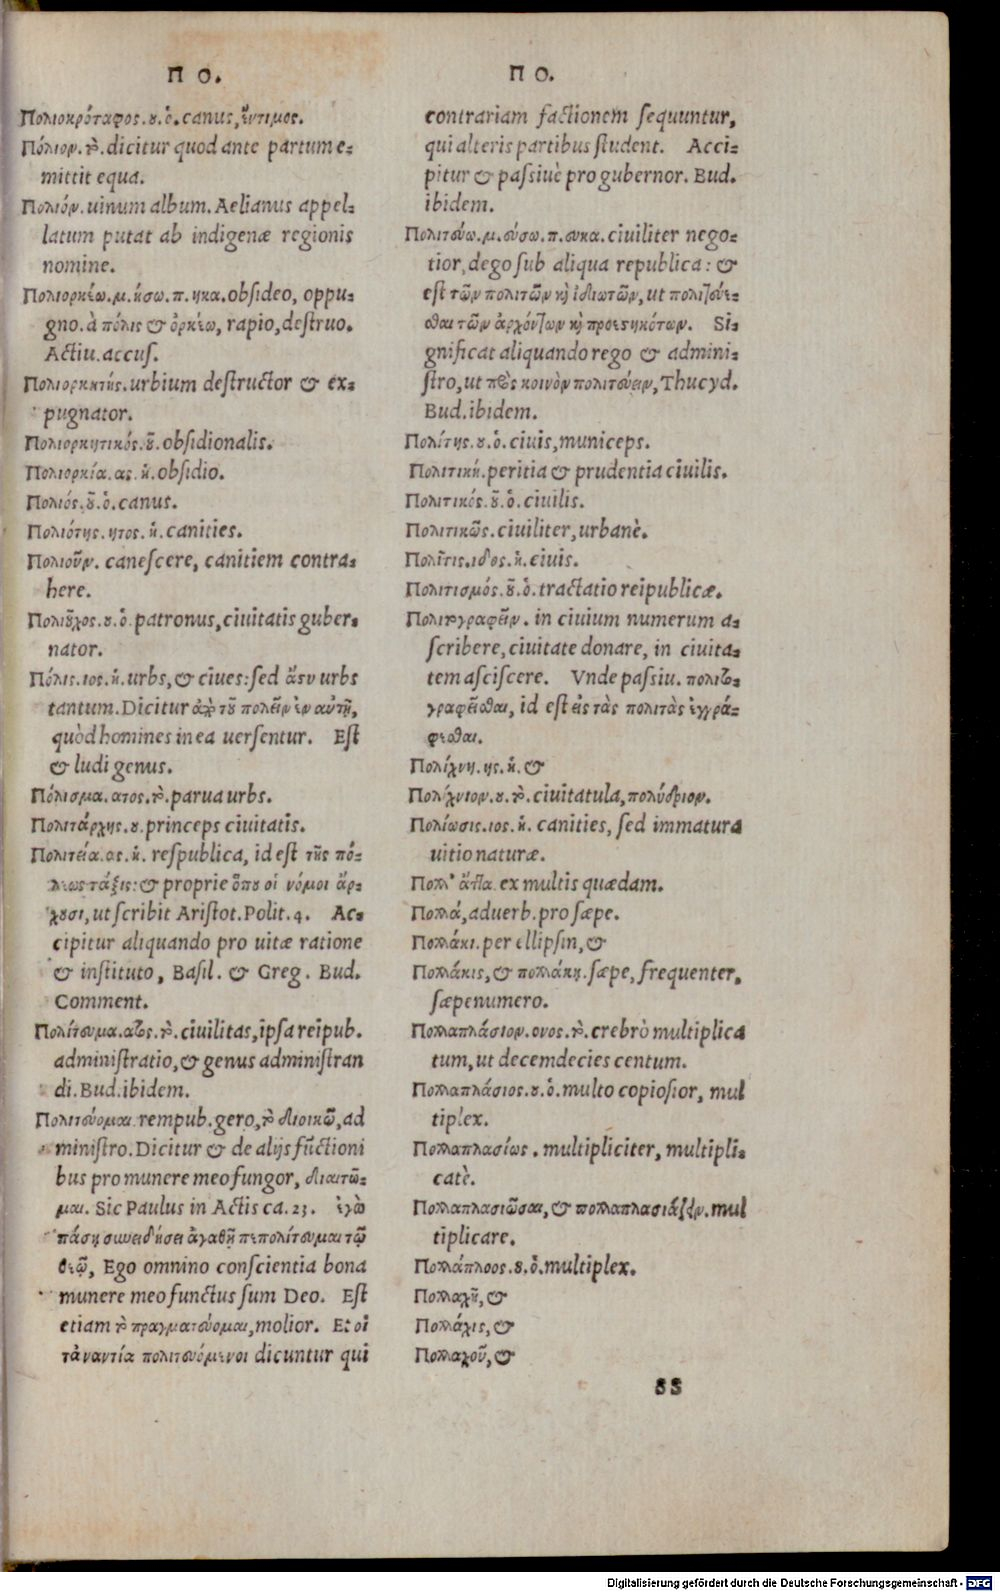 Π Ο.
Πολιοκρόταφος.ου.ὁ.canus,ἔντιμος.
Πόλιον.τὸ.dicitur quod ante partum e-
mittit equa.
Πολιόν.uinum album.Aelianus appel-
latum putat ab indigenæ regionis
nomine.
Πολιορκέω.μ.ήσω.π.ηκα.obsideo, oppu-
gno.à πόλις & ὀρκέω, rapio,destruo.
Actiu.accus.
Πολιορκητής.urbium destructor & ex-
pugnator.
Πολιορκητικός.οῦ.obsidionalis.
Πολιορκία.ας.ἡ.obsidio.
Πολιός.οῦ.ὁ.canus.
Πολιότης.ητος.ἡ.canities.
Πολιοῦν. canescere, canitiem contra-
here.
Πολιοῦχος.ου.ὁ.patronus,ciuitatis guber-
nator.
Πόλις.ιος.ἡ.urbs,& ciues:sed ἄστυ urbs
tantum.Dicitur ἀπὸ τοῦ πολεῖν ἐν αὐτῇ,
quòd homines in ea uersentur. Est
& ludi genus.
Πόλισμα.ατος.τὸ.parua urbs.
Πολιτάρχης.ου.princeps ciuitatis.
Πολιτεία.ας.ἡ. respublica, id est τῆς πό-
λεως τάξις:& proprie ὅπου οἱ νόμοι ἄρ-
χουσι,ut scribit Aristot.Polit.4. Ac-
cipitur aliquando pro uitæ ratione
& instituto, Basil. & Greg. Bud.
Comment.
Πολίτευμα.ατος.τὸ.ciuilitas,ipsa reipub.
administratio,& genus administran
di.Bud.ibidem.
Πολιτεύομαι.rempub.gero,τὸ διοικῶ,ad
ministro.Dicitur & de alijs fūctioni
bus pro munere meo fungor, διαιτῶ-
μαι. Sic Paulus in Actis ca.23. ἐγὼ
πάσῃ συνειδήσει ἀγαθῇ πεπολίτευμαι τῷ
θεῷ, Ego omnino conscientia bona
munere meo functus sum Deo. Est
etiam τὸ πραγματεύομαι,molior. Et οἱ
τἀναντία πολιτευόμενοι dicuntur qui
Π Ο.
contrariam factionem sequuntur,
qui alteris partibus student. Acci-
pitur & passiuè pro gubernor. Bud.
ibidem.
Πολιτεύω.μ.εύσω.π.ευκα.ciuiliter nego-
tior,dego sub aliqua republica: &
est τῶν πολιτῶν καὶ ἰδιωτῶν,ut πολιτεύε-
σθαι τῶν ἀρχόντων καὶ προεστηκότων. Si-
gnificat aliquando rego & admini-
stro,ut πρὸς κοινὸν πολιτεύειν,Thucyd.
Bud.ibidem.
Πολίτης.ου.ὁ.ciuis,municeps.
Πολιτική.peritia & prudentia ciuilis.
Πολιτικός.οῦ.ὁ.ciuilis.
Πολιτικῶς.ciuiliter,urbanè.
Πολῖτις.ιδος.ἡ.ciuis.
Πολιτισμός.οῦ.ὁ.tractatio reipublicæ.
Πολιτογραφεῖν. in ciuium numerum a-
scribere,ciuitate donare, in ciuita-
tem asciscere. Vnde passiu. πολιτο-
γραφεῖσθαι, id est εἰς τὰς πολιτὰς ἐγγρά-
φεσθαι.
Πολίχνη.ης.ἡ.&
Πολίχνιον.ου.τὸ.ciuitatula,πολύδριον.
Πολίωσις.ιος.ἡ. canities, sed immatura
uitio naturæ.
Πολλ' ἄττα.ex multis quædam.
Πολλά,aduerb.pro sæpe.
Πολλάκι.per ellipsin,&
Πολλάκις,& πολλάκη.sæpe,frequenter,
sæpenumero.
Πολλαπλάσιον.ονος.τὸ.crebrò multiplica
tum,ut decemdecies centum.
Πολλαπλάσιος.ου.ὁ.multo copiosior, mul
tiplex.
Πολλαπλασίως. multipliciter, multipli-
catè.
Πολλαπλασιῶσαι,& πολλαπλασιάζειν.mul
tiplicare.
Πολλάπλοος.ου.ὁ.multiplex.
Πολλαχῆ,&
Πολλάχις,&
Πολλαχοῦ,&
SS
Digitalisierung gefördert durch die Deutsche Forschungsgemeinschaft - DFG